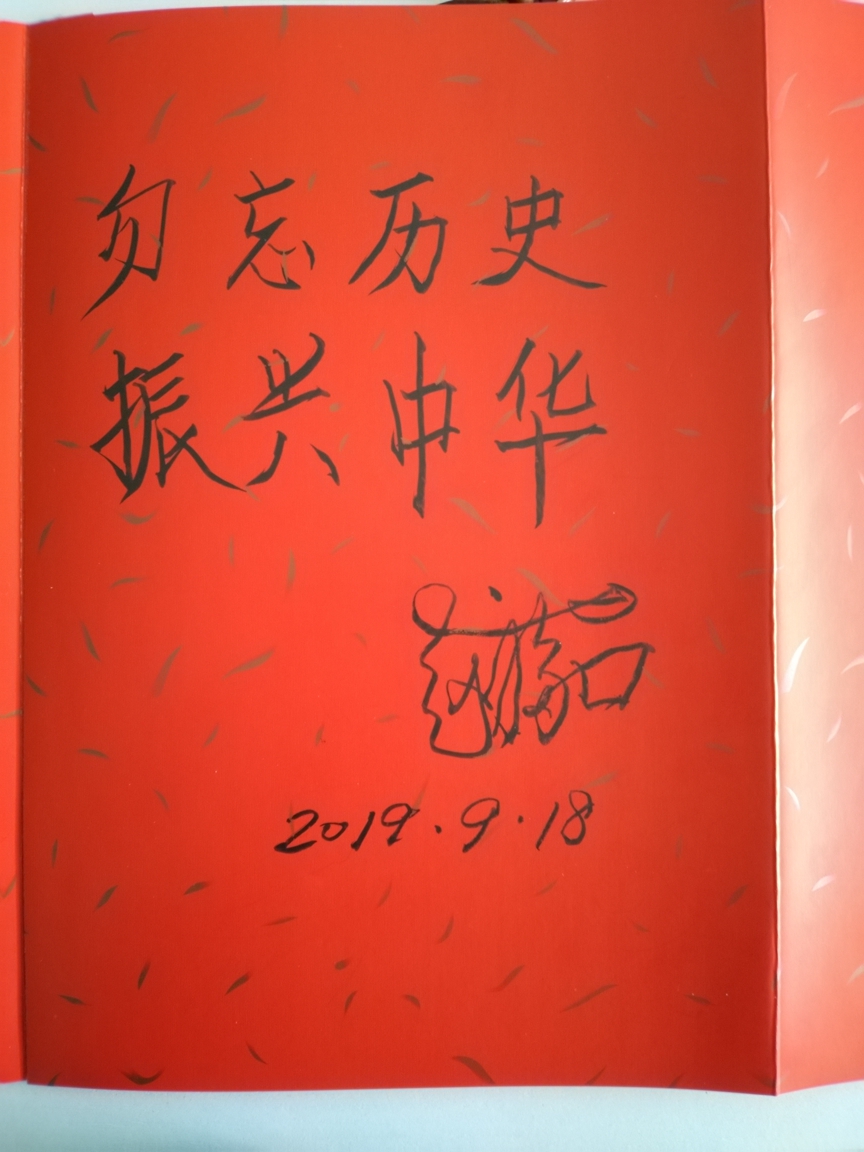 勿忘历史
振兴中华
2019.9.18